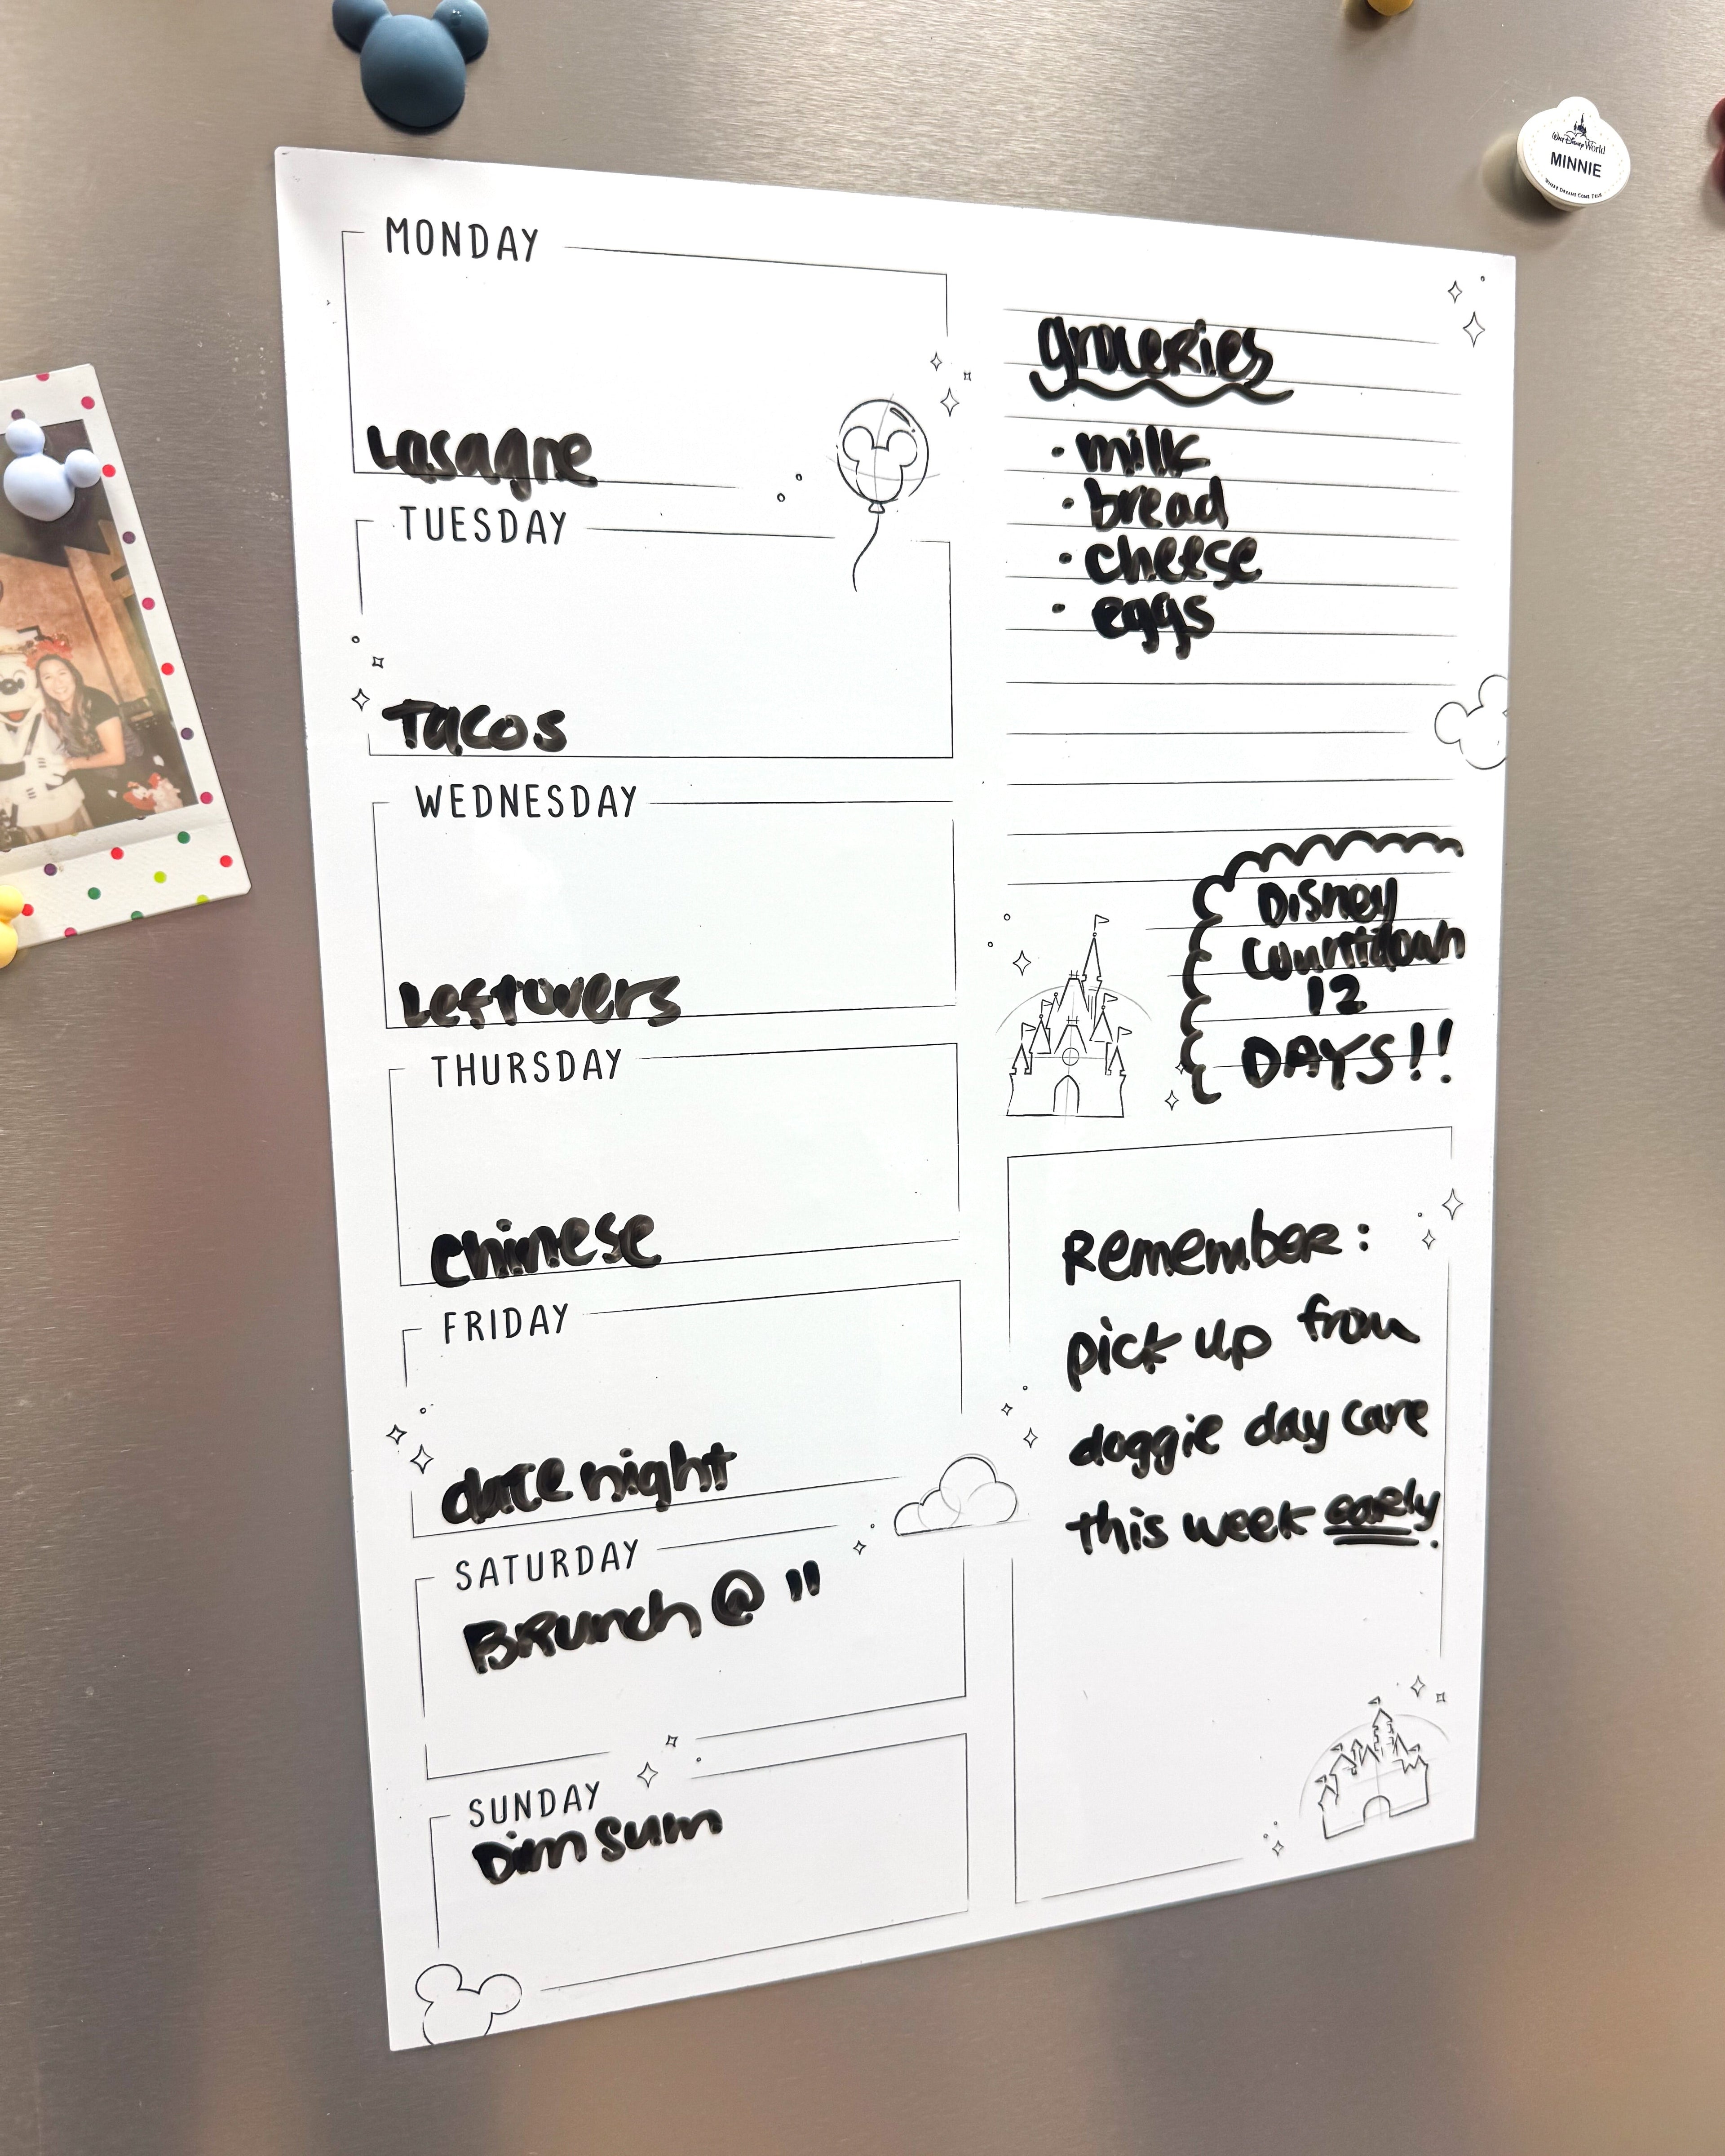 Walt Disney World
MINNIE
WHERE DREAMS COME TRUE
MONDAY
Lasagne
TUESDAY
Tacos
WEDNESDAY
Leftovers
THURSDAY
Chinese
FRIDAY
date night
SATURDAY
BRunch @ 11
SUNDAY
Dim Sum
groceries
· milk
· bread
· cheese
· eggs
Disney
Countdown
12
DAYS!!
Remember:
pick up from
doggie day care
this week early.